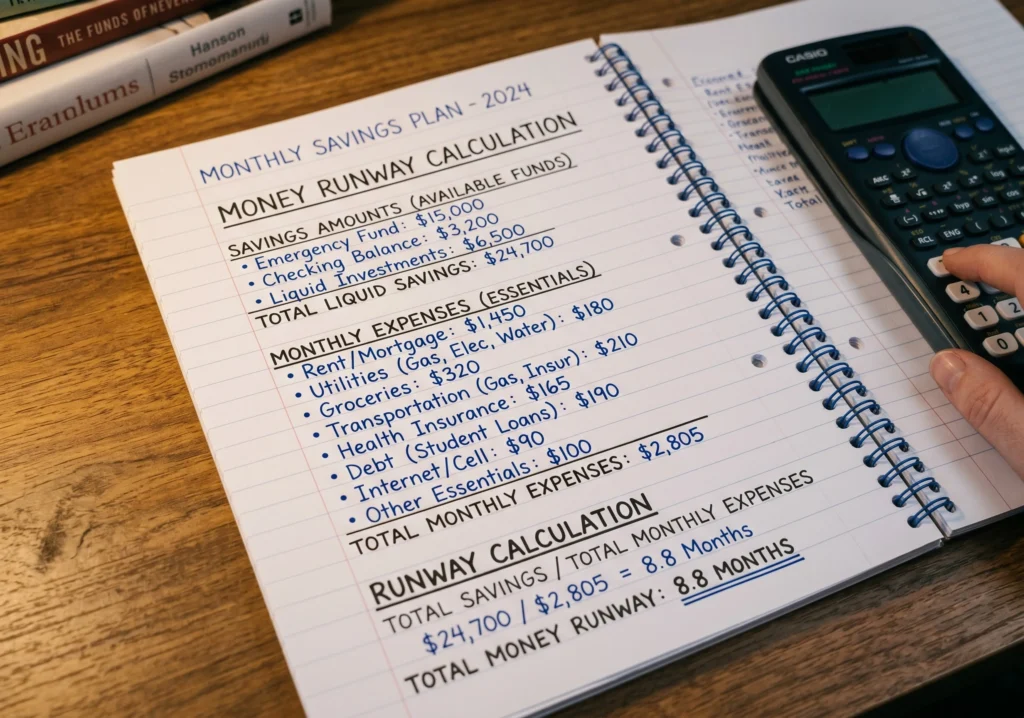 ING THE FUNDS OF
Eranlums Hanson
MONTHLY SAVINGS PLAN - 2024
MONEY RUNWAY CALCULATION
SAVINGS AMOUNTS (AVAILABLE FUNDS)
• Emergency Fund: $15,000
• Checking Balance: $3,200
• Liquid Investments: $6,500
TOTAL LIQUID SAVINGS: $24,700
MONTHLY EXPENSES (ESSENTIALS)
• Rent/Mortgage: $1,450
• Utilities (Gas, Elec, Water): $180
• Groceries: $320
• Transportation (Gas, Insur): $210
• Health Insurance: $165
• Debt (Student Loans): $190
• Internet/Cell: $90
• Other Essentials: $100
TOTAL MONTHLY EXPENSES: $2,805
RUNWAY CALCULATION
TOTAL SAVINGS / TOTAL MONTHLY EXPENSES
$24,700 / $2,805 = 8.8 Months
TOTAL MONEY RUNWAY: 8.8 MONTHS
Total
CASIO
RCL ENG
4
1 2
0